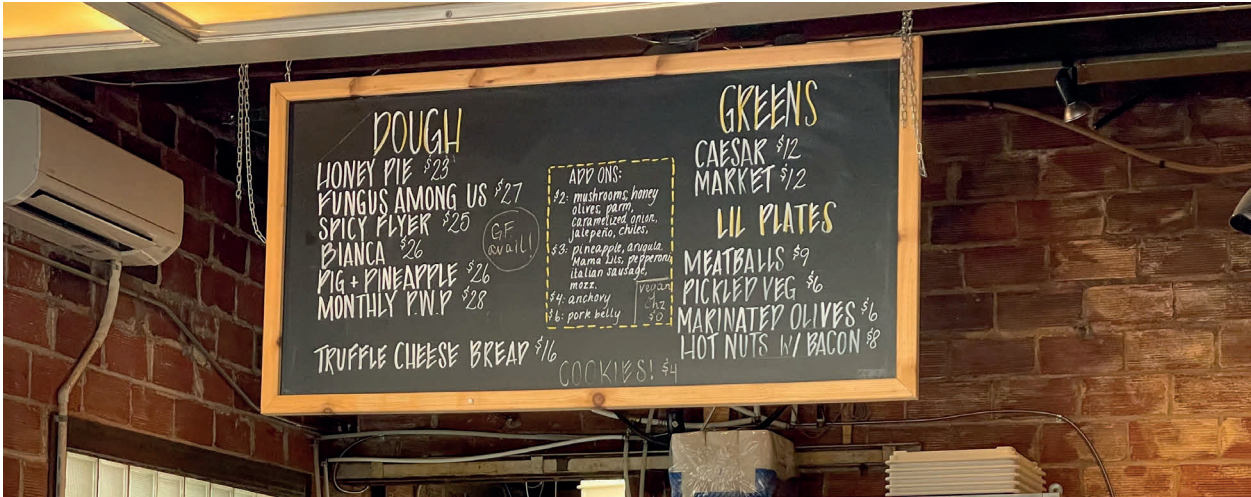 DOUGH
HONEY PIE $23
FUNGUS AMONG US $27
SPICY FLYER $25
BIANCA $26
PIG + PINEAPPLE $26
MONTHLY P.W.P $28
GF
avail!
TRUFFLE CHEESE BREAD $16
ADD ONS:
$2: mushrooms, honey
olives, parm,
caramelized onion,
jalepeño, chiles,
$3: pineapple, arugula
Mama Lils, pepperoni
italian sausage,
mozz.
$4: anchovy
$6: pork belly
vegan
chz
$0
COOKIES! $4
GREENS
CAESAR $12
MARKET $12
LIL PLATES
MEATBALLS $9
PICKLED VEG $6
MARINATED OLIVES $6
HOT NUTS W/ BACON $8